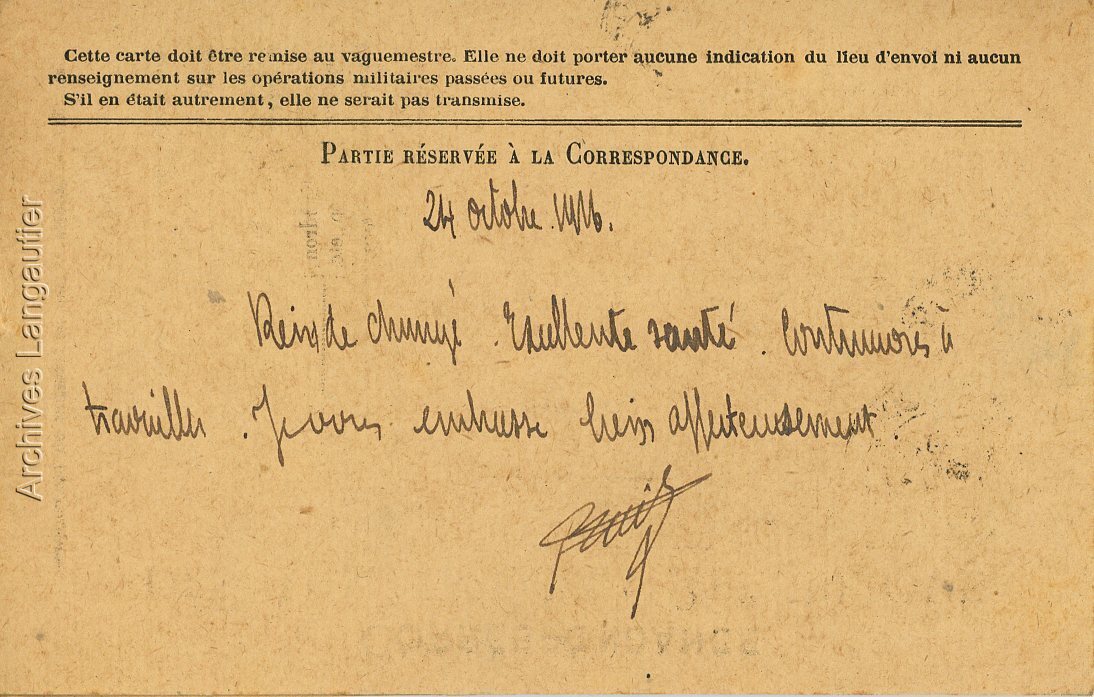 Cette carte doit être remise au vaguemestre. Elle ne doit porter aucune indication du lieu d'envoi ni aucun
renseignement sur les opérations militaires passées ou futures.
S'il en était autrement, elle ne serait pas transmise.
PARTIE RÉSERVÉE À LA CORRESPONDANCE.
24 octobre 1916.
Rien de changé. Excellente santé. Continuons à
travailler. Je vous embrasse bien affectueusement.
Archives Langautier